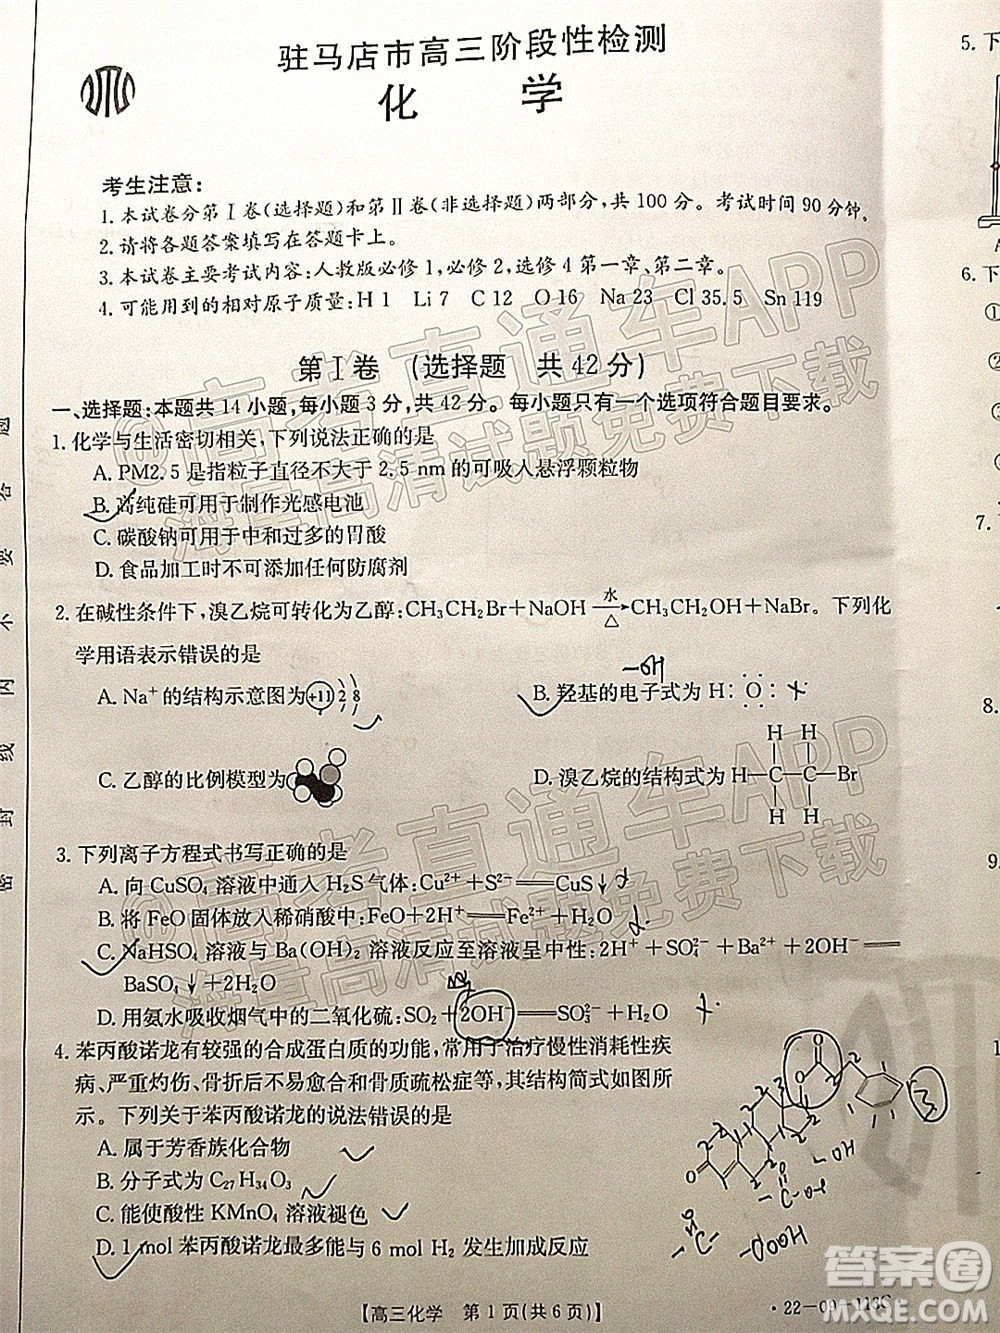 驻马店市高三阶段性检测
化 学
考生注意:
1. 本试卷分第Ⅰ卷(选择题)和第Ⅱ卷(非选择题)两部分,共100分。考试时间90分钟。
2. 请将各题答案填写在答题卡上。
3. 本试卷主要考试内容:人教版必修1,必修2,选修4第一章、第二章。
4. 可能用到的相对原子质量:H 1 Li 7 C 12 O 16 Na 23 Cl 35.5 Sn 119
第Ⅰ卷 (选择题 共42分)
一、选择题:本题共14小题,每小题3分,共42分。每小题只有一个选项符合题目要求。
1. 化学与生活密切相关,下列说法正确的是
A. PM2.5是指粒子直径不大于2.5 nm的可吸入悬浮颗粒物
B. 高纯硅可用于制作光感电池
C. 碳酸钠可用于中和过多的胃酸
D. 食品加工时不可添加任何防腐剂
2. 在碱性条件下,溴乙烷可转化为乙醇:CH₃CH₂Br+NaOH —水/△→ CH₃CH₂OH+NaBr。下列化
学用语表示错误的是
A. Na⁺的结构示意图为 +11 2 8
B. 羟基的电子式为 H:O:
C. 乙醇的比例模型为
D. 溴乙烷的结构式为 H—C—C—Br
H H
H H
3. 下列离子方程式书写正确的是
A. 向CuSO₄溶液中通入H₂S气体:Cu²⁺+S²⁻══CuS↓
B. 将FeO固体放入稀硝酸中:FeO+2H⁺══Fe²⁺+H₂O
C. NaHSO₄溶液与Ba(OH)₂溶液反应至溶液呈中性:2H⁺+SO₄²⁻+Ba²⁺+2OH⁻══
BaSO₄↓+2H₂O
D. 用氨水吸收烟气中的二氧化硫:SO₂+2OH⁻══SO₃²⁻+H₂O
4. 苯丙酸诺龙有较强的合成蛋白质的功能,常用于治疗慢性消耗性疾
病、严重灼伤、骨折后不易愈合和骨质疏松症等,其结构简式如图所
示。下列关于苯丙酸诺龙的说法错误的是
A. 属于芳香族化合物
B. 分子式为C₂₇H₃₄O₃
C. 能使酸性KMnO₄溶液褪色
D. 1 mol苯丙酸诺龙最多能与6 mol H₂发生加成反应
【高三化学 第1页(共6页)】
·22-09-113C·
密 封 线 内 不 要 答 题
5. 下
A
6. 下
①
②
③
7.
8.
9
1
@高考直通车APP
海量高清试题免费下载
高考直通车APP
海量高清试题免费下载
答案圈
MXQE.COM